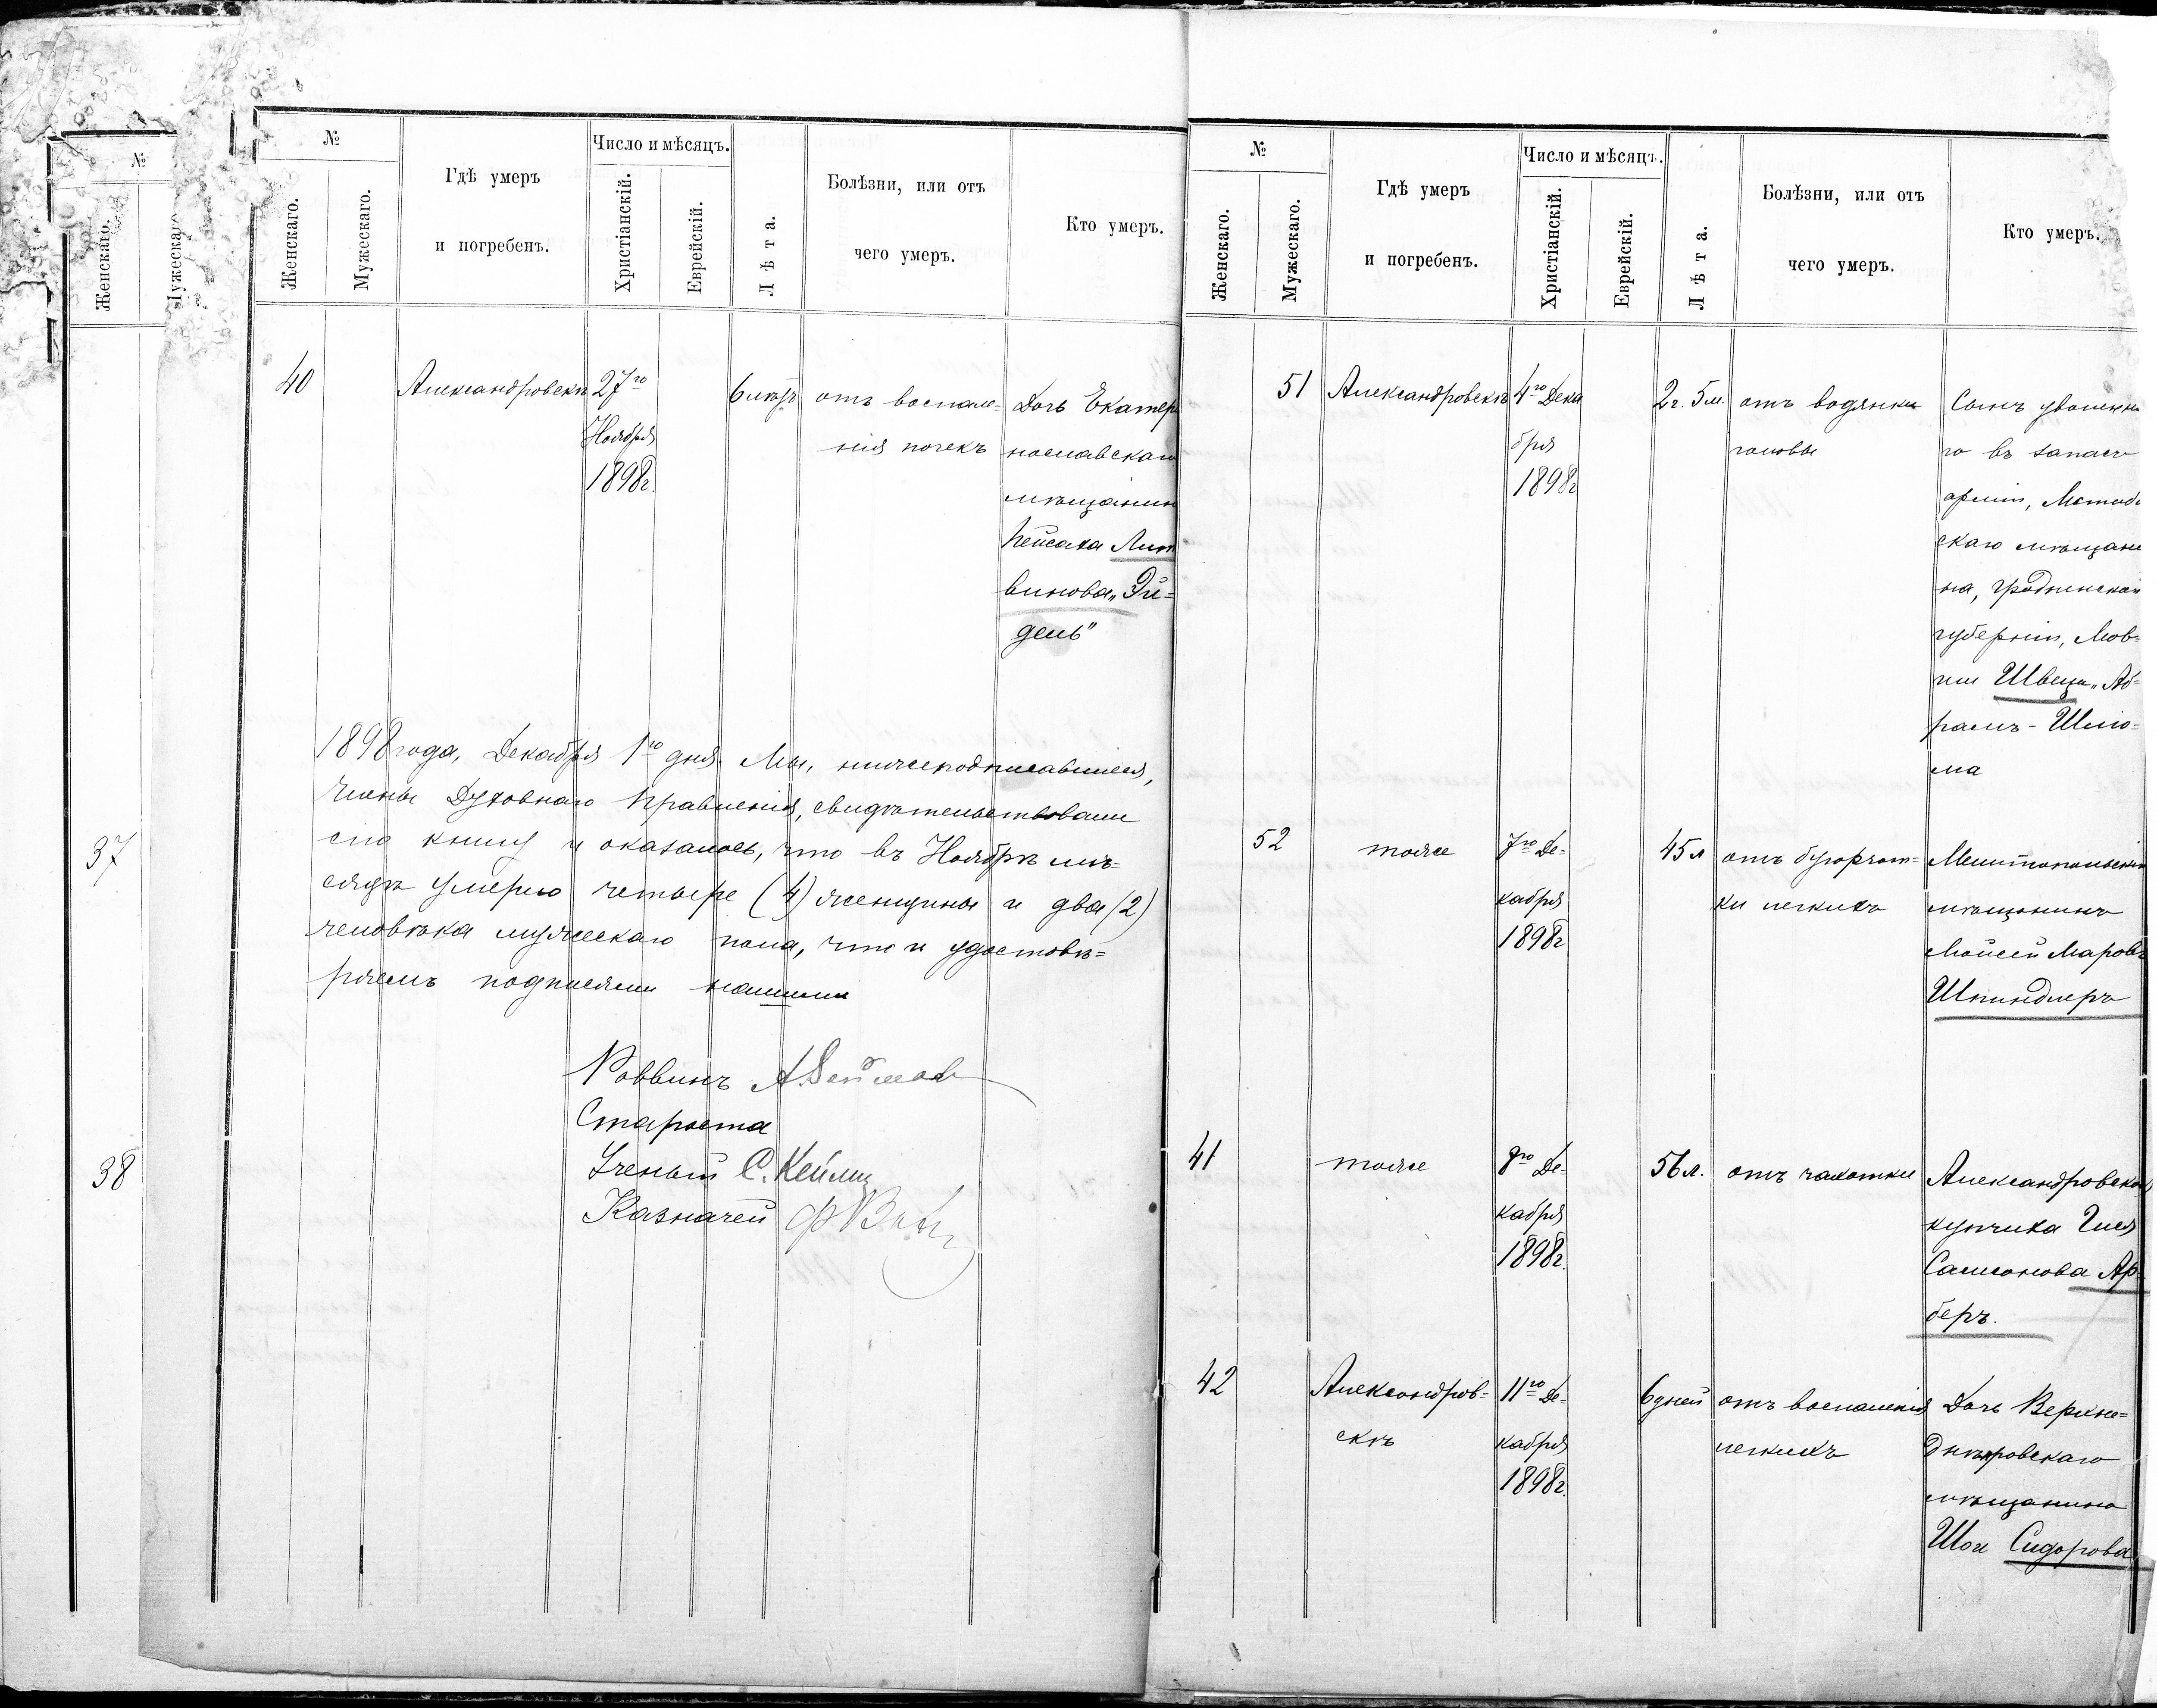 №
Женскаго.
37
38
№
Женскаго.
Мужескаго.
Гдѣ умеръ
и погребенъ.
Число и мѣсяцъ.
Христіанскій.
Еврейскій.
Лѣта.
Болѣзни, или отъ
чего умеръ.
Кто умеръ.
40
Александровскъ
27го
Ноября
1898г.
отъ воспале=
нія почекъ
Дочь Екатер
нославскаго
мѣщанин
Пейсаха Лит
винова „Эй=
дель"
1898 года, Декабря 1го дня. Мы, нижеподписавшіеся,
Члены Духовнаго Правленія, свидѣтельствовали
сію книгу и оказалось, что въ Ноябрѣ мѣ=
сяцѣ умерло четыре (4) женщины и два (2)
человѣка мужескаго пола, что и удостовѣ=
ряемъ подписями нашими
Раввинъ
Староста
Ученый С.
Казначей
№
Женскаго.
Мужескаго.
Гдѣ умеръ
и погребенъ.
Число и мѣсяцъ.
Христіанскій.
Еврейскій.
Лѣта.
Болѣзни, или отъ
чего умеръ.
Кто умеръ.
51
Александровскъ
4го Дека
бря
1898г
2г. 5м.
отъ водянки
головы
Сынъ уволенна
го въ запасъ
арміи,
скаго мѣщани
на, Гродненской
губерніи, Мов=
ши Швеца „Аб=
рамъ-Шлio=
ма
52
тоже
7го Де=
кабря
1898г
45л
отъ бугорчат=
ки легкихъ
Мелитопольскій
мѣщанинъ
Мойсей Маровъ
Шпиндлеръ
41
тоже
8го Де=
кабря
1898г.
56л.
отъ чахотки
Александровская
купчиха Гися
Самсонова Ар=
беръ.
42
Александров=
скъ
11го Де=
кабря
1898г.
6дней
отъ воспаленія
легкихъ
Дочь Верхне=
Днѣпровскаго
мѣщанина
Шои Сидорова